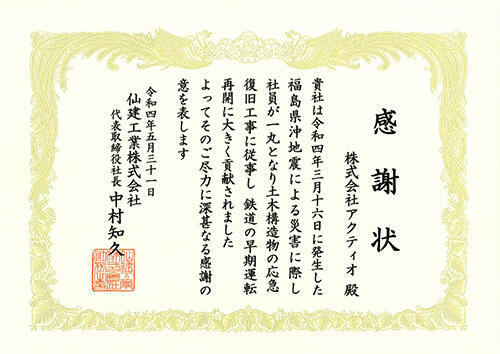 感謝状
株式会社アクティオ 殿
貴社は令和四年三月十六日に発生した
福島県沖地震による災害に際し
社員が一丸となり土木構造物の応急
復旧工事に従事し 鉄道の早期運転
再開に大きく貢献されました
よってそのご尽力に深甚なる感謝の
意を表します
令和四年五月三十一日
仙建工業株式会社
代表取締役社長 中村知久